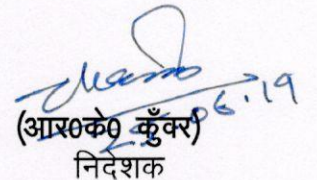 06.19
(आर०के० कुँवर)
निदेशक